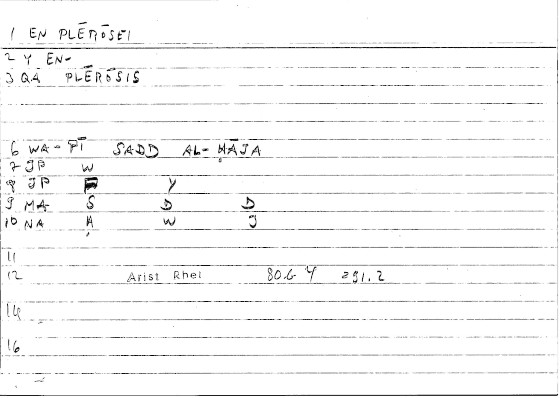 1 EN PLĒRŌSEI
2 Y EN-
3 QA PLĒRŌSIS
6 WA- FĪ SADD AL-ḤĀJA
7 JP W
8 JP F Y
9 MA S D D
10 NA Ḥ W J
11
12 Arist Rhet 80.6 Y 291.2
14
16